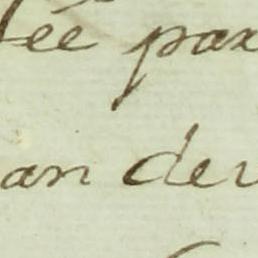 tée par
an deu